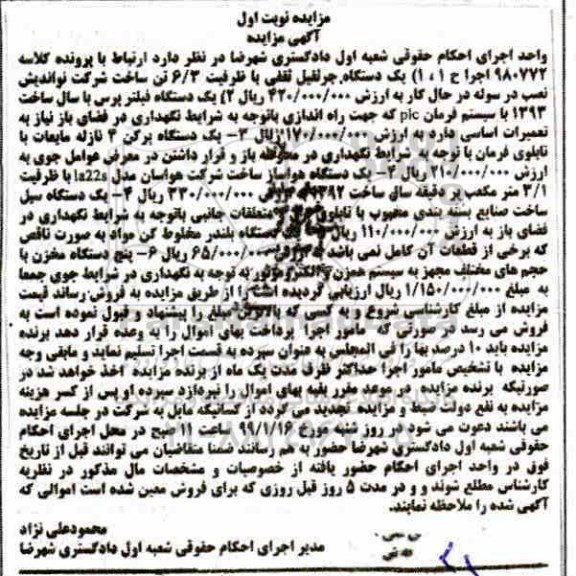 مزایده نوبت اول
آگهی مزایده
واحد اجرای احکام حقوقی شعبه اول دادگستری شهرضا در نظر دارد ارتباط با پرونده کلاسه
۹۸۰۷۷۲ اجرا ح ۱ ، ۱) یک دستگاه جرثقیل ثقفی با ظرفیت ۶/۳ تن ساخت شرکت نواندیش
نصب در سوله در حال کار به ارزش ۴۲۰/۰۰۰/۰۰۰ ریال ۲) یک دستگاه فیلتر پرس با سال ساخت
۱۳۹۳ با سیستم فرمان plc که جهت راه اندازی باتوجه به شرایط نگهداری در فضای باز نیاز به
تعمیرات اساسی دارد به ارزش ۱۷۰/۰۰۰/۰۰۰ ریال ۳- یک دستگاه پرکن ۴ نازله مایعات با
تابلوی فرمان با توجه به شرایط نگهداری در محوطه باز و قرار داشتن در معرض عوامل جوی به
ارزش ۲۱۰/۰۰۰/۰۰۰ ریال ۴- یک دستگاه هواساز ساخت شرکت هواسان مدل la22s با ظرفیت
۳/۱ متر مکعب بر دقیقه سال ساخت ۱۳۹۲ ۳۳۰/۰۰۰/۰۰۰ ریال ۴- یک دستگاه سیل
ساخت صنایع بسته بندی محبوب با تابلوی متعلقات جانبی باتوجه به شرایط نگهداری در
فضای باز به ارزش ۱۱۰/۰۰۰/۰۰۰ ریال یک دستگاه بلندر مخلوط کن مواد به صورت ناقص
که برخی از قطعات آن کامل نمی باشد به ارزش ۶۵/۰۰۰/۰۰۰ ریال ۶- پنج دستگاه مخزن با
حجم های مختلف مجهز به سیستم همزن و الکتروموتور به توجه به نگهداری در شرایط جوی جمعا
به مبلغ ۱/۱۵۰/۰۰۰/۰۰۰ ریال ارزیابی گردیده است را از طریق مزایده به فروش رساند قیمت
مزایده از مبلغ کارشناسی شروع و به کسی که بالاترین مبلغ را پیشنهاد و قبول نموده است به
فروش می رسد در صورتی که مامور اجرا پرداخت بهای اموال را به وعده قرار دهد برنده
مزایده باید ۱۰ درصد بها را فی المجلس به عنوان سپرده به قسمت اجرا تسلیم نماید و مابقی وجه
مزایده با تشخیص مامور اجرا حداکثر ظرف مدت یک ماه از برنده مزایده اخذ خواهد شد در
صورتیکه برنده مزایده در موعد مقرر بقیه بهای اموال را نپردازد سپرده او پس از کسر هزینه
مزایده به نفع دولت ضبط و مزایده تجدید می گردد از کسانیکه مایل به شرکت در جلسه مزایده
می باشند دعوت می شود در روز شنبه مورخ ۹۹/۱/۱۶ ساعت ۱۱ صبح در محل اجرای احکام
حقوقی شعبه اول دادگستری شهرضا حضور به هم رسانند ضمنا متقاضیان می توانند قبل از تاریخ
فوق در واحد اجرای احکام حضور یافته از خصوصیات و مشخصات مال مذکور در نظریه
کارشناس مطلع شوند و و در مدت ۵ روز قبل روزی که برای فروش معین شده است اموالی که
آگهی شده را ملاحظه نمایند.
محمودعلی نژاد
مدیر اجرای احکام حقوقی شعبه اول دادگستری شهرضا